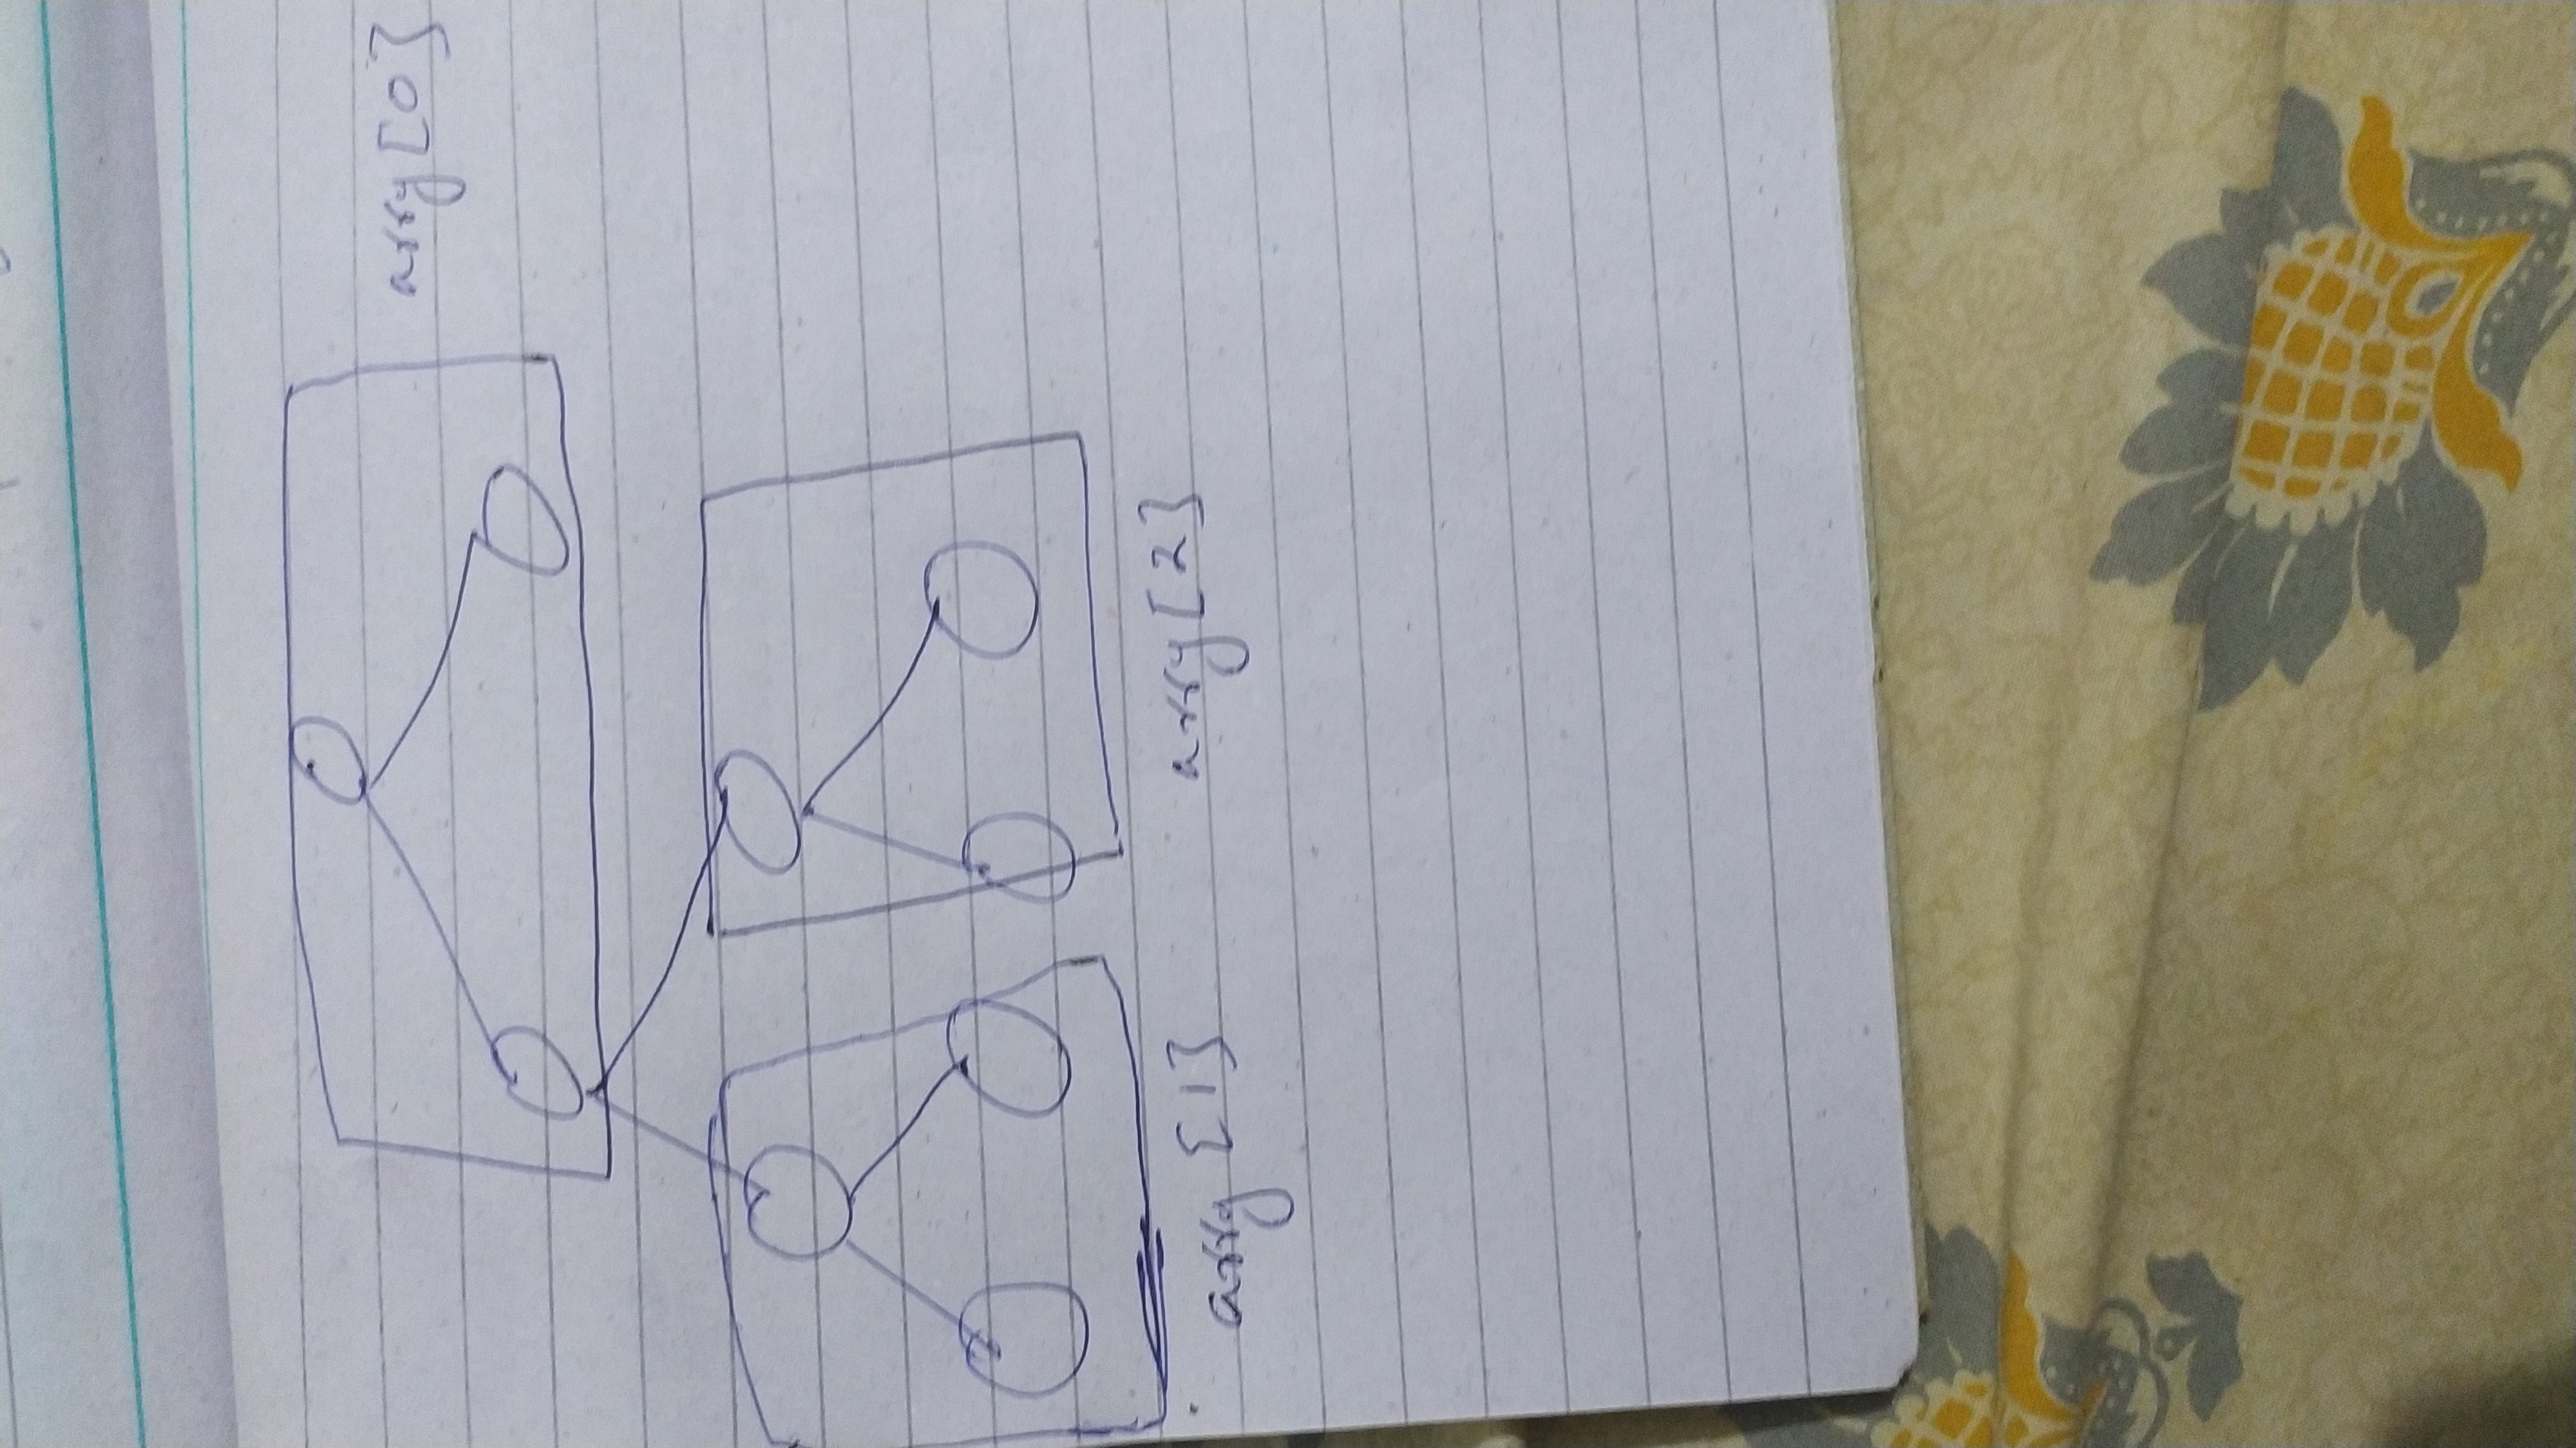 arry[0]
arry[1]
arry[2]